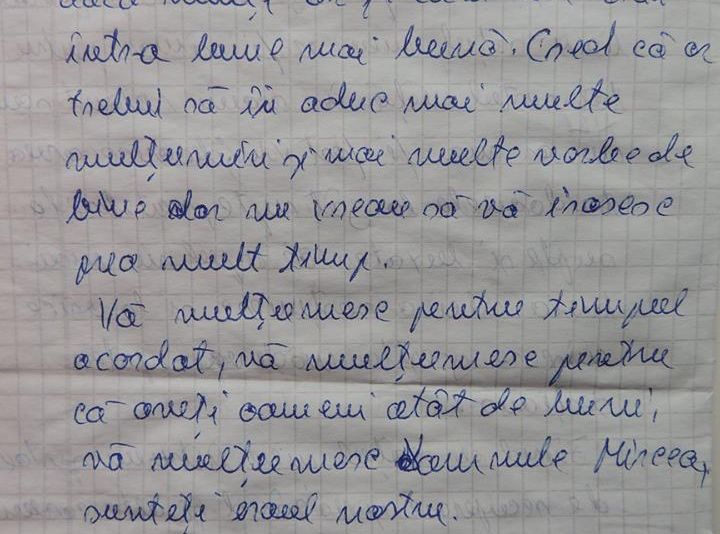 într-o lume mai bună. Cred că ar
trebui să îi aduc mai multe
mulțumiri și mai multe vorbe de
bine dar nu vreau să vă irosesc
prea mult timp.
Vă mulțumesc pentru timpul
acordat, vă mulțumesc pentru
că aveți oameni atât de buni,
vă mulțumesc domnule Mircea,
sunteți eroul nostru.